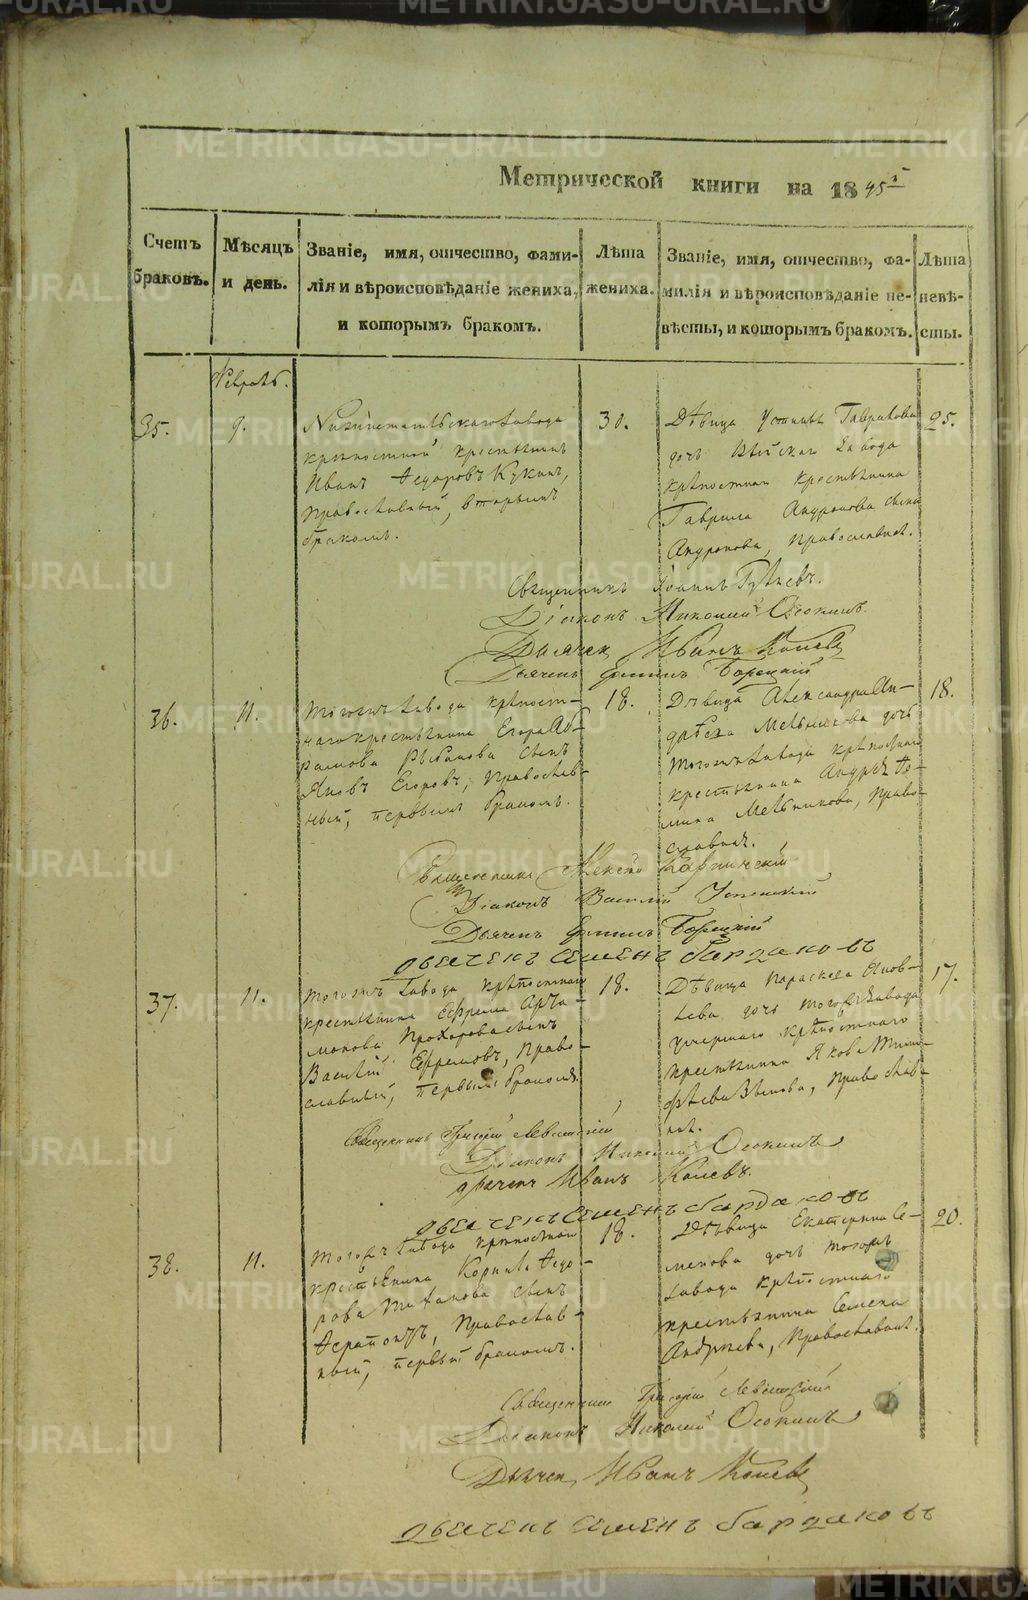 METRIKI.GASO-URAL.RU
Метрической книги на 1845й
Счетъ браковъ.
Мѣсяцъ и день.
Званіе, имя, отчество, фами-
лія и вѣроисповѣданіе жениха,
и которымъ бракомъ.
Лѣта
жениха.
Званіе, имя, отчество, фа-
милія и вѣроисповѣданіе не-
вѣсты, и которымъ бракомъ.
Лѣта
невѣ-
сты.
Февраль.
35.
9.
Завода
крѣпостной крестьянинъ
Иванъ Федоровъ Кукинъ,
Православный, вторымъ
бракомъ.
30.
Дѣвица Гаврилова
дочь Завода
крѣпостнаго крестьянина
Гаврила Андронова
Андронова, Православная.
25.
Священникъ Іоаннъ
Діаконъ Николай Осокинъ.
Дьячекъ Иванъ Коневъ
Дьячекъ Борецкій
36.
11.
Тогожъ Завода крѣпост-
наго крестьянина Егора Аб-
рамова Рыбакова сынъ
Яковъ Егоровъ, Православ-
ный, первымъ бракомъ.
18.
Дѣвица Александра Ан-
дрѣева Мельникова дочь
тогожъ Завода крѣпостнаго
крестьянина Андрея Фо-
мина Мельникова, Право-
славная.
18.
Священникъ Алексѣй Карпинскій
Діаконъ Василій Успенскій
Дьячекъ Борецкій
дьячекъ семенъ бардаковъ
37.
11.
Тогожъ Завода крѣпостнаго
крестьянина Ефрема Арта-
монова Прохорова сынъ
Василій Ефремовъ, Право-
славный, первымъ бракомъ.
18.
Дѣвица Параскева Яков-
лева дочь тогожъ Завода
умершаго крѣпостнаго
крестьянина Якова Тимо-
фѣева, Православ-
ная.
17.
Священникъ Григорій Левитскій
Діаконъ Николай Осокинъ
дьячекъ Иванъ Коневъ.
дьячекъ семенъ бардаковъ
38.
11.
Тогожъ Завода крѣпостнаго
крестьянина Корнила Федо-
рова сынъ
Ферапонтъ, Православ-
ный, первый бракомъ.
18.
Дѣвица Екатерина Се-
менова дочь тогожъ
Завода крѣпостнаго
крестьянина Семена
Андреева, Православная.
20.
Священникъ Григорій Левитскій
Діаконъ Николай Осокинъ
Дьячекъ Иванъ Коневъ
дьячекъ семенъ бардаковъ